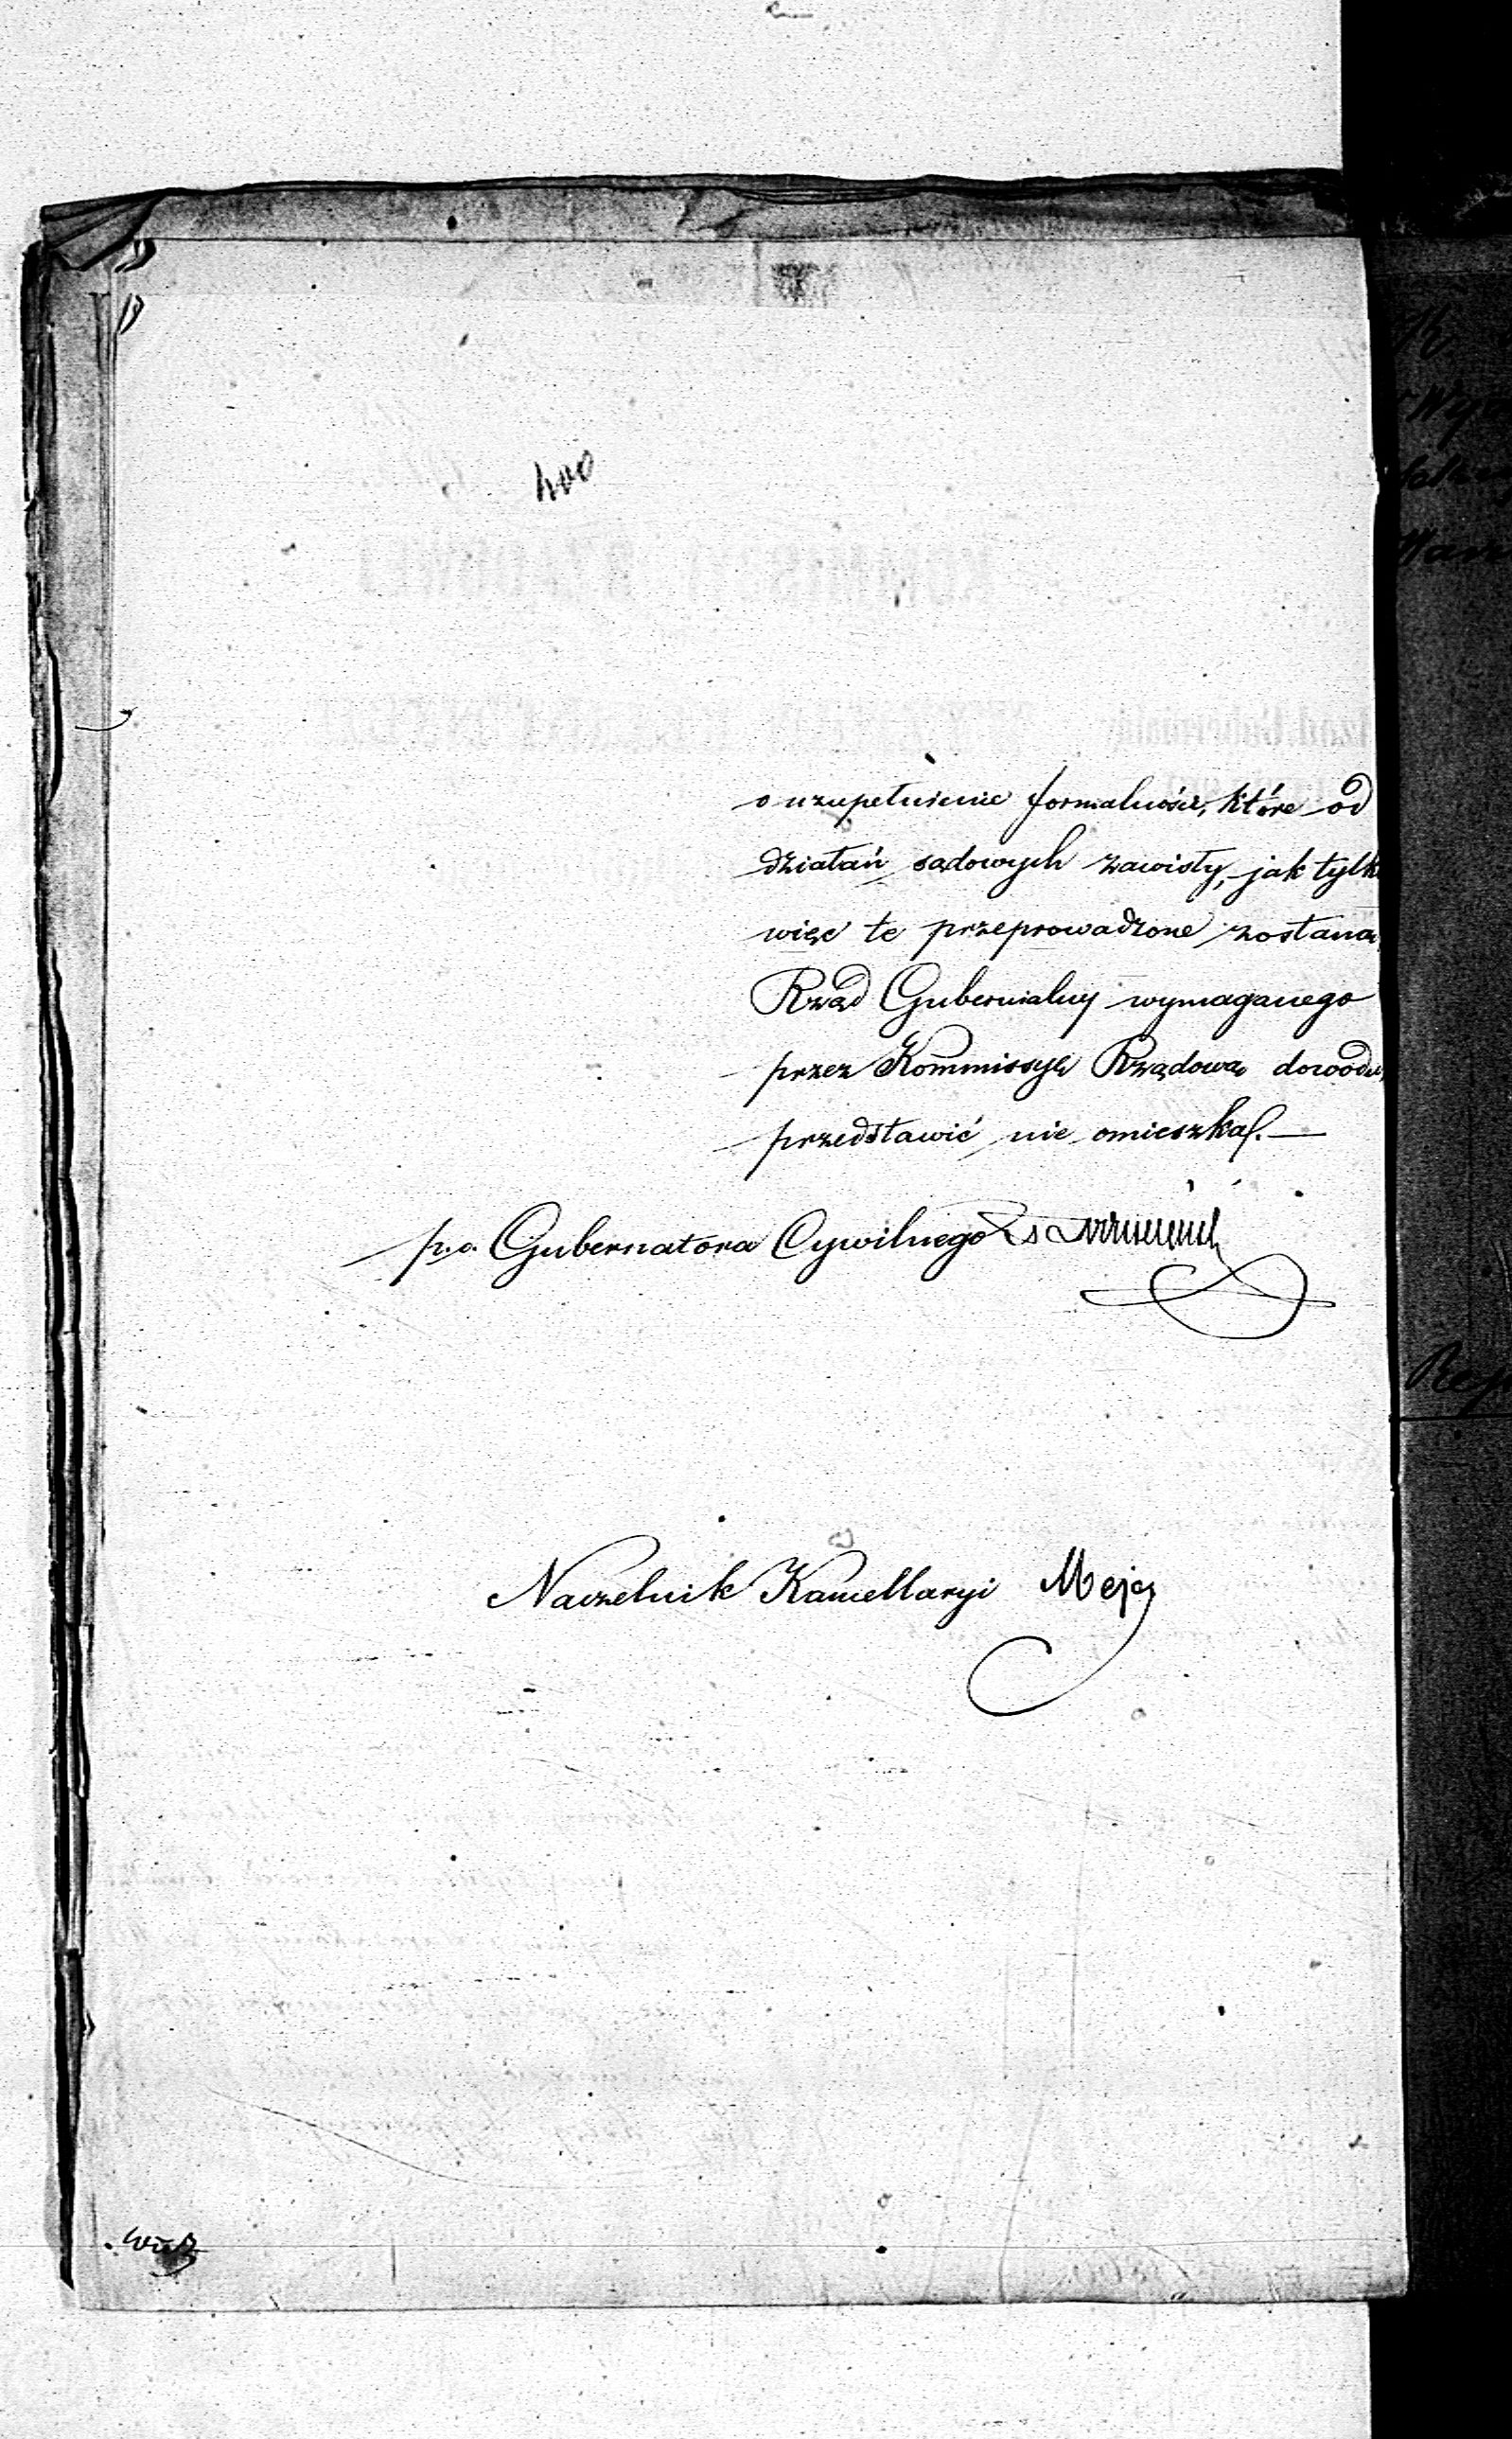 400
o uzupełnienie formalności, które od
działań sądowych zawisły, jak tylko
więc te przeprowadzone zostaną,
Rząd Gubernialny wymaganego
przez Kommissyę Rządową dowodu,
przedstawić nie omieszka.—
p. o. Gubernatora Cywilnego
Naczelnik Kancellaryi